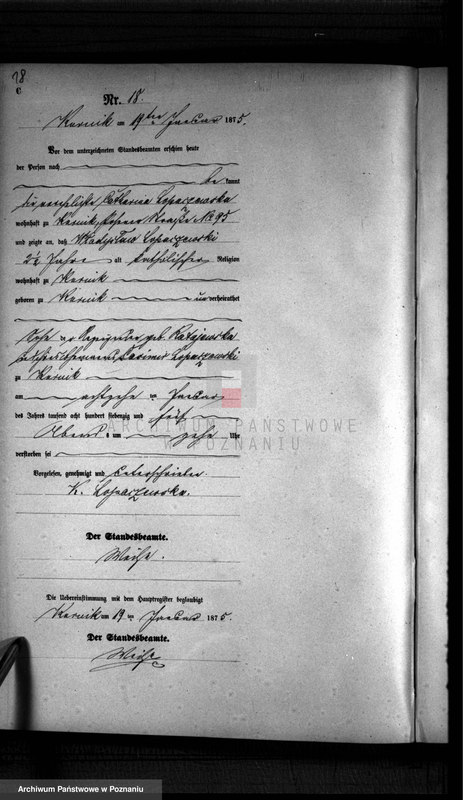 18
C
Nr. 18.
Kurnik am 19ten Januar 1875.
Vor dem unterzeichneten Standesbeamten erschien heute
der Person nach
be kannt
die verehelichte Catharina Lopaczewska
wohnhaft zu Kurnik, Posener Straße No 95
und zeigte an, daß Wladyslaw Lopaczewski
2½ Jahre alt katholischer Religion
wohnhaft zu Kurnik
geboren zu Kurnik unverheirathet
Sohn der geb.
Ehemanns Casimir Lopaczewski
zu Kurnik
am achtzehn ten Januar
des Jahres tausend acht hundert siebenzig und fünf
Abend s um zehn Uhr
verstorben sei
Vorgelesen, genehmigt und unterschrieben
K. Lopaczewska.
Der Standesbeamte.
Weise.
Die Uebereinstimmung mit dem Hauptregister beglaubigt
Kurnik am 19 ten Januar 1875.
Der Standesbeamte.
Weise
ARCHIWUM PAŃSTWOWE
W POZNANIU
Archiwum Państwowe w Poznaniu